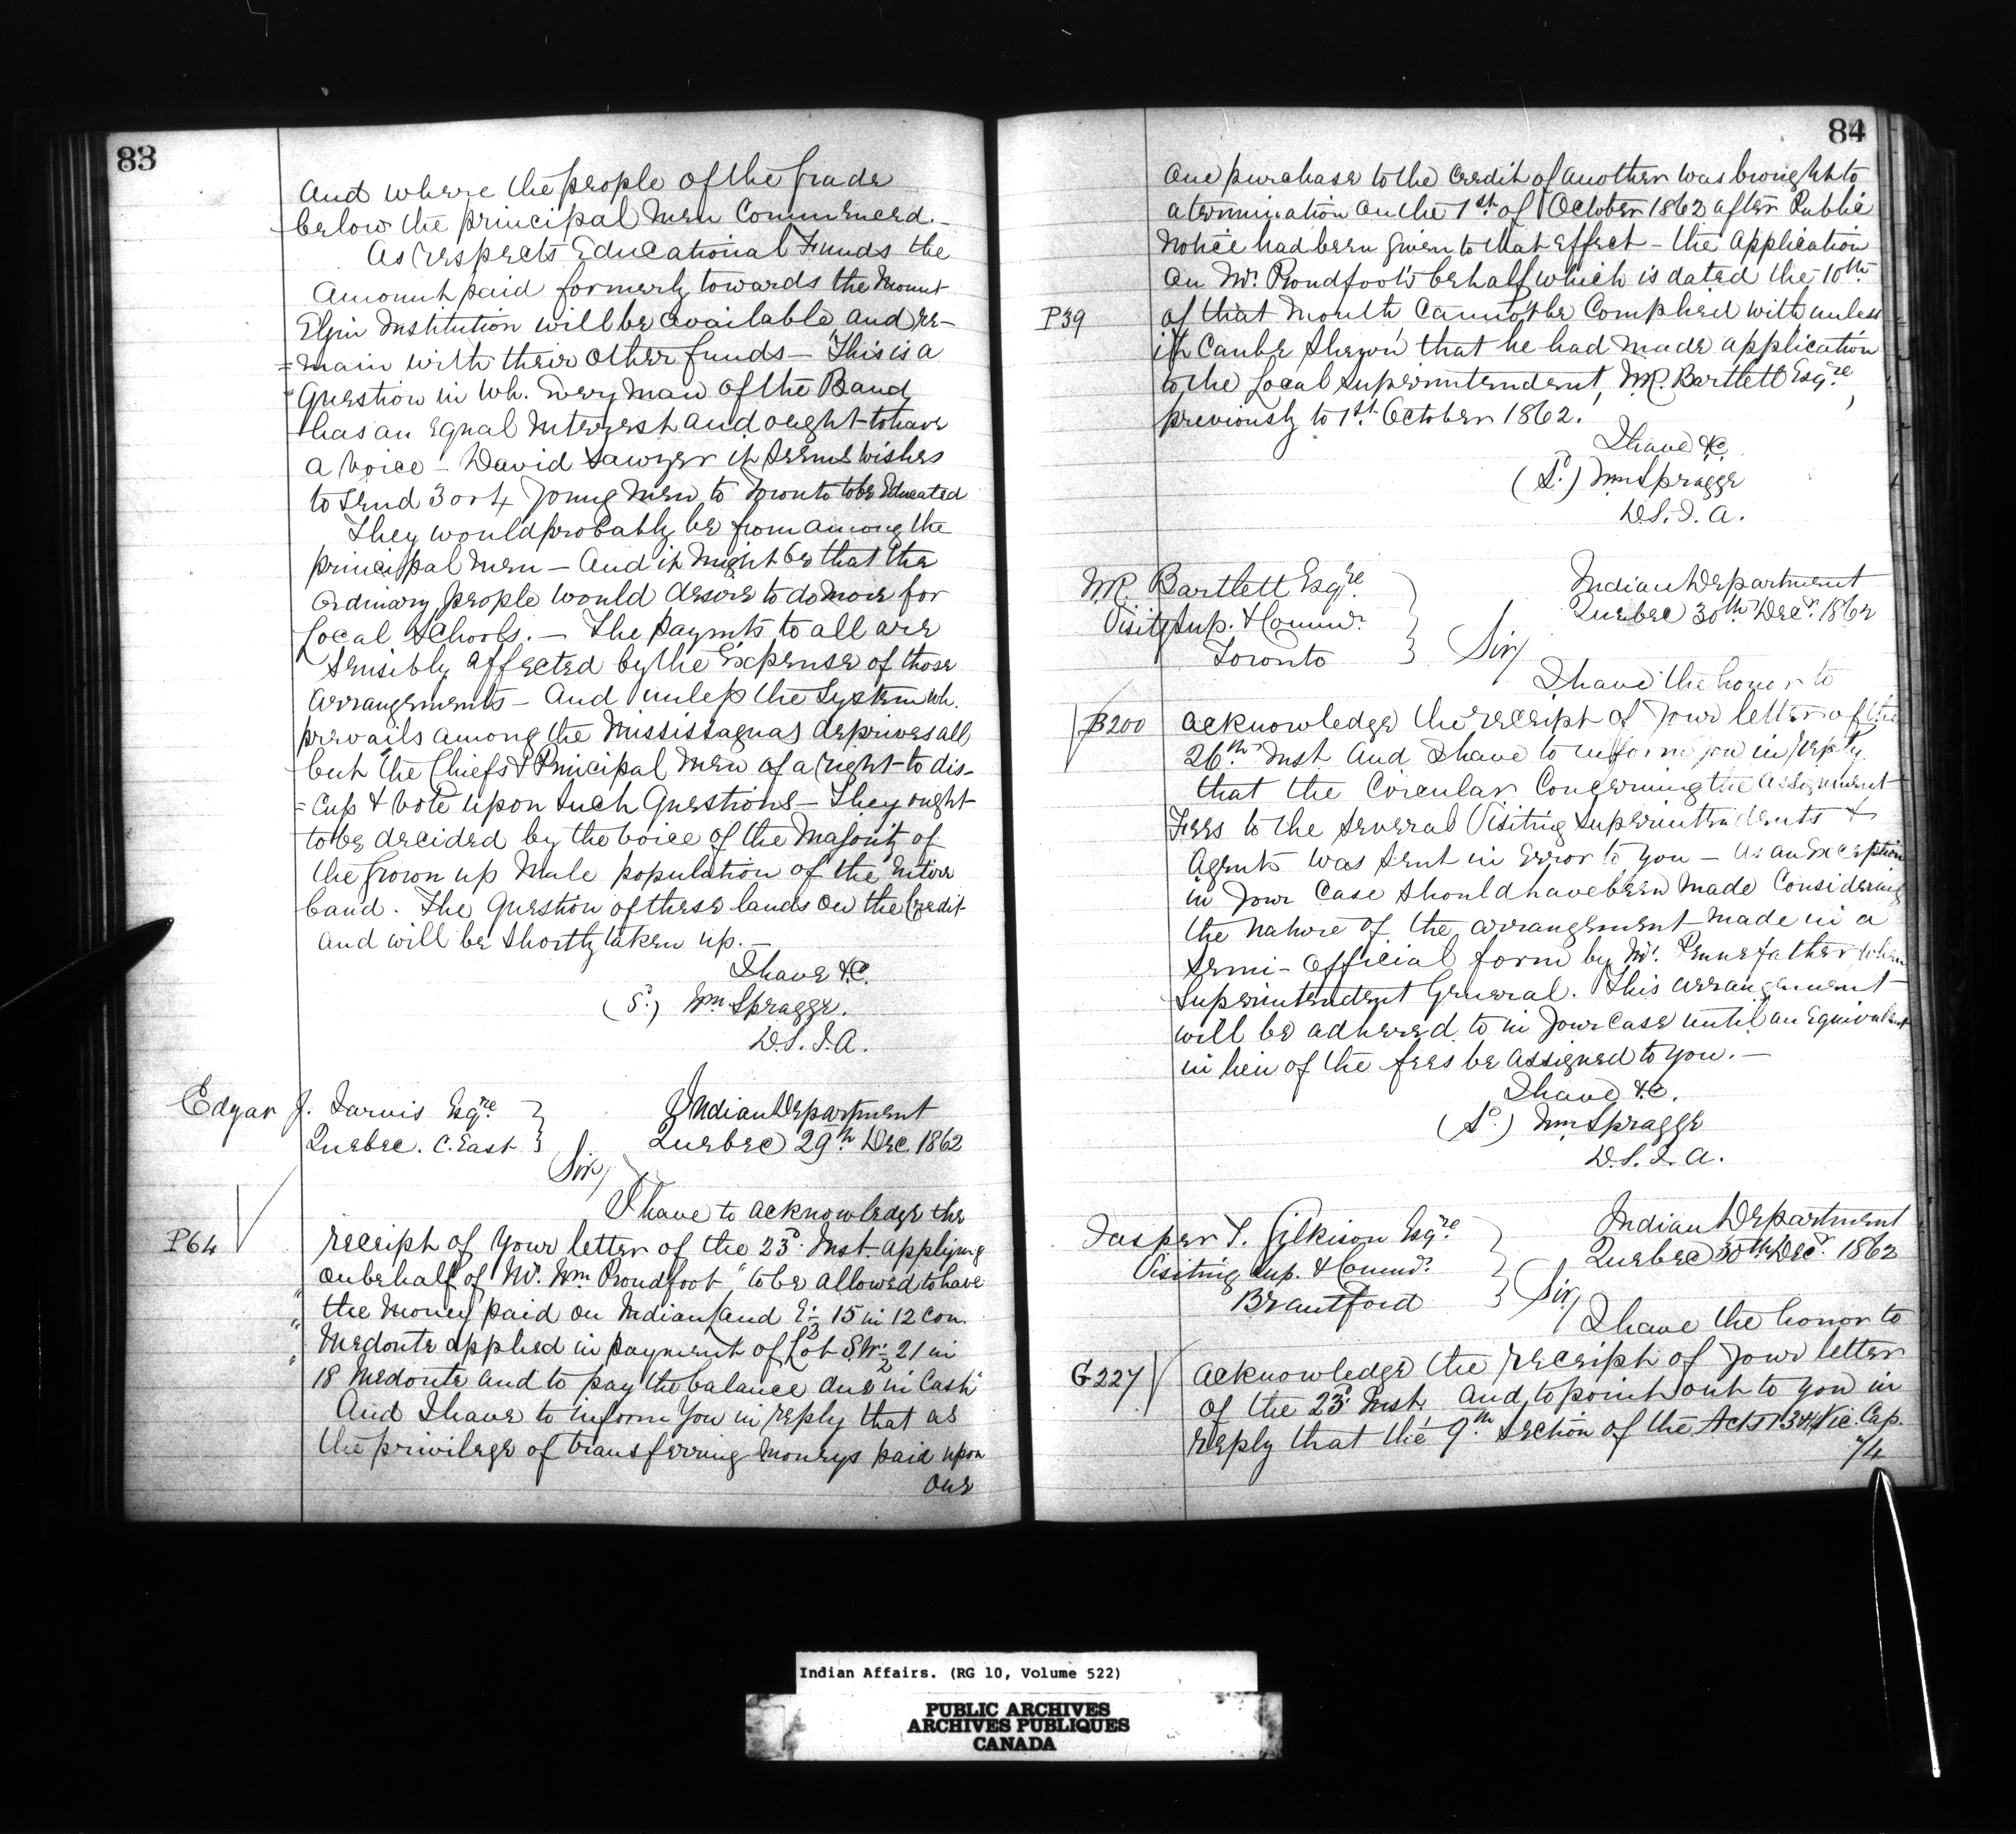 83
and where the people of the grade
below the principal men Commenced.–
As respects Educational Funds the
Amount paid formerly towards the Mount
Elgin Institution will be available and re-
=main with their other funds – This is a
Question in wh. every man of the Band
has an Equal Interest and ought to have
a voice – David Sawyer it seems wishes
to send 3 or 4 young men to Toronto to be Educated
They would probably be from among the
principal men – And it might be that the
ordinary people would desire to do more for
Local Schools. – The paymts to all are
sensibly affected by the Expense of those
arrangements – And unless the System wh.
prevails among the Mississaguas deprives all
but the Chiefs & Principal men of a right to dis-
=cuss & vote upon such Questions – They ought
to be decided by the voice of the Majority of
the grown up male population of the Entire
band. The Question of these lands on the Credit
and will be shortly taken up. –
I have &c.
(Sd.) Wm Spragge.
D.S.I.A.
Edgar J. Jarvis Esqre.
Quebec. C. East
Indian Department
Quebec 29th Dec. 1862
Sir,
I have to acknowledge the
P64
receipt of your letter of the 23d. Inst. applying
on behalf of Mr. Wm Proudfoot "to be allowed to have
" the money paid on Indian Land E½ 15 in 12 Con.
" Medonte applied in payment of Lot S.W.½ 21 in
" 18 Medonte and to pay the balance due in Cash"
And I have to inform you in reply that as
the privilege of transferring moneys paid upon
one
84
one purchase to the credit of another was brought to
a termination on the 1st. of October 1862 after Public
notice had been given to that effect – the application
on Mr. Proudfoot's behalf which is dated the 10th
P39
of that Month Cannot be Complied with unless
it can be shewn that he had made application
to the Local Superintendent, W.R. Bartlett Esqre,
previously to 1st. October 1862.
I have &c.
(Sd.) Wm Spragge
D.S.I.A.
W.R. Bartlett Esqre.
Visitg Sup. & Commr.
Toronto
Indian Department
Quebec 30th. Decr. 1862
Sir,
I have the honor to
B200
acknowledge the receipt of your letter of the
26th. Inst and I have to inform you in reply
that the Circular Concerning the Assignment
Fees to the several Visiting Superintendents &
Agents was sent in error to you – as an Exception
in your case should have been made Considering
the nature of the arrangement made in a
semi-official form by Mr. Pennefather when
Superintendent General. This arrangement
will be adhered to in your case until an Equivalent
in lieu of the fees be assigned to you. –
I have &c.
(Sd.) Wm Spragge
D.S.I.A.
Jasper T. Gilkison Esqre
Visiting Sup. & Commr.
Brantford
Indian Department
Quebec 30th. Decr. 1862
Sir,
I have the honor to
G227
acknowledge the receipt of your letter
of the 23d. Inst. and to point out to you in
reply that the 9th. Section of the Act 13 & 14 Vic. Cap.
74
Indian Affairs. (RG 10, Volume 522)
PUBLIC ARCHIVES
ARCHIVES PUBLIQUES
CANADA